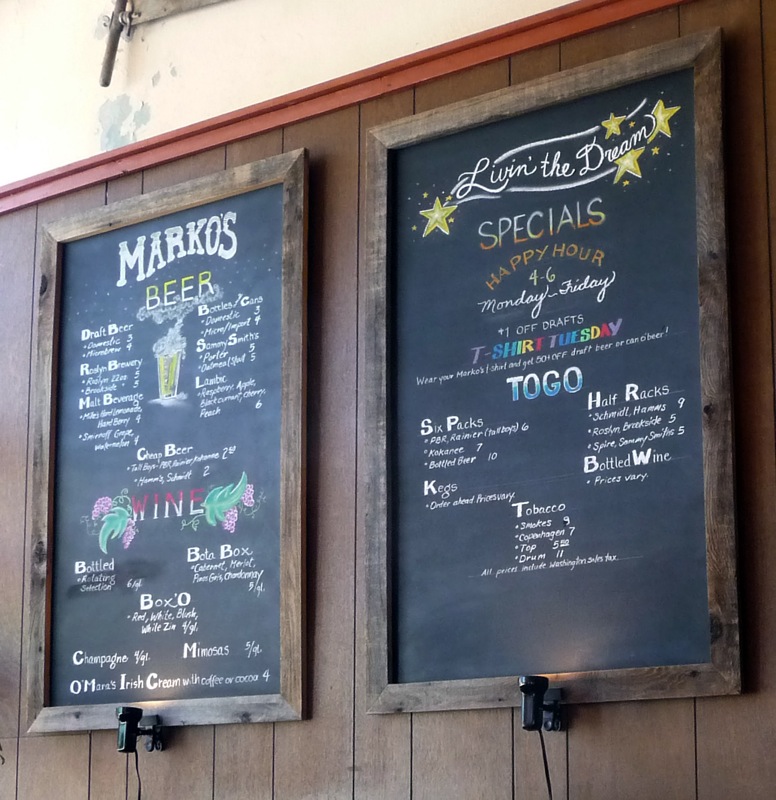 MARKO'S
BEER
Draft Beer
• Domestic 3
• Microbrew 4
Roslyn Brewery
• Roslyn 22oz 5
• Brookside 5
Malt Beverage
• Mike's Hard Lemonade
Hard Berry 4
• Smirnoff Grape,
Watermelon 4
Bottles/Cans
• Domestic 3
• Micro/Import 4
Sammy Smith's
• Porter 5
• Oatmeal Stout 5
Lambic
• Raspberry, Apple,
Black currant, cherry,
Peach 6
Cheap Beer
• Tall Boys - PBR, Rainier, Kokanee 2 50
• Hamm's, Schmidt 2
WINE
Bottled
• Rotating
Selection 6/gl.
Bota Box
• Cabernet, Merlot,
Pinot Gris, Chardonnay
5/gl.
Box'O
• Red, White, Blush,
White Zin 4/gl.
Champagne 4/gl. Mimosas 5/gl.
O'Mara's Irish Cream with coffee or cocoa 4
Livin' the Dream
SPECIALS
HAPPY HOUR
4-6
Monday-Friday
$1 OFF DRAFTS
T-SHIRT TUESDAY
Wear your Marko's t-shirt and get 50¢ OFF draft beer or can o' beer!
TOGO
Six Packs
• PBR, Rainier (tallboys) 6
• Kokanee 7
• Bottled Beer 10
Kegs
• Order ahead Prices vary.
Half Racks
• Schmidt, Hamms 9
• Roslyn, Brookside 5
• Spire, Sammy Smiths 5
Bottled Wine
• Prices vary.
Tobacco
• Smokes 9
• Copenhagen 7
• Top 5 50
• Drum 11
All prices include Washington sales tax.